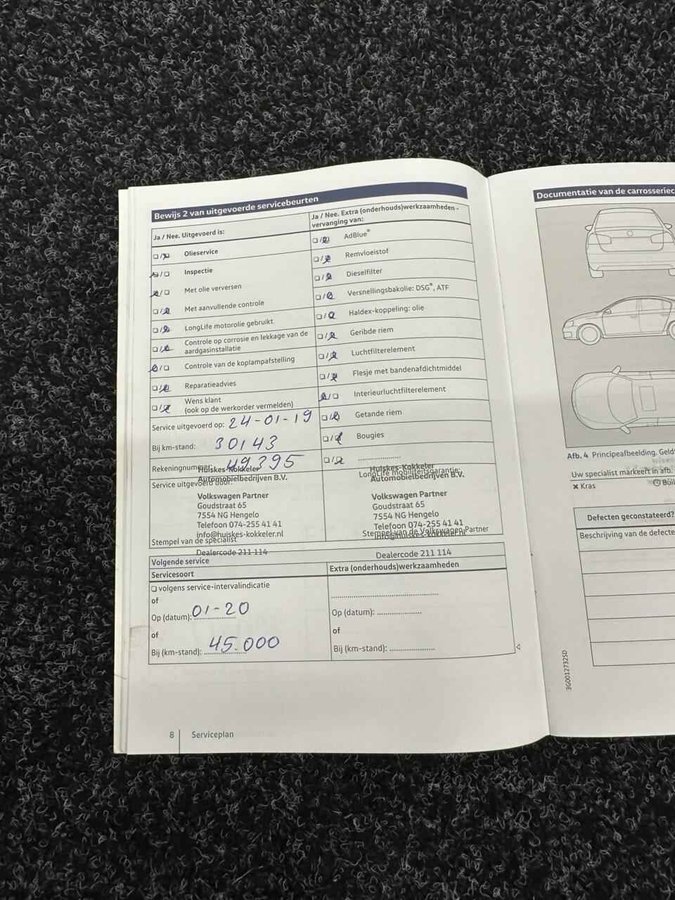 Bewijs 2 van uitgevoerde servicebeurten
Ja / Nee. Uitgevoerd is:
Olieservice
Inspectie
Met olie verversen
Met aanvullende controle
LongLife motorolie gebruikt
Controle op corrosie en lekkage van de
aardgasinstallatie
Controle van de koplampafstelling
Reparatieadvies
Wens klant
(ook op de werkorder vermelden)
Service uitgevoerd op: 24-01-19
Bij km-stand: 30143
Rekeningnummer: 49395
Service uitgevoerd door:
Huiskes-Kokkeler
Automobielbedrijven B.V.
Volkswagen Partner
Goudstraat 65
7554 NG Hengelo
Telefoon 074-255 41 41
info@huiskes-kokkeler.nl
Stempel van de specialist
Dealercode 211 114
Ja / Nee. Extra (onderhouds)werkzaamheden -
vervanging van:
AdBlue®
Remvloeistof
Dieselfilter
Versnellingsbakolie: DSG®, ATF
Haldex-koppeling: olie
Geribde riem
Luchtfilterelement
Flesje met bandenafdichtmiddel
Interieurluchtfilterelement
Getande riem
Bougies
LongLife mobiliteitsgarantie:
Huiskes-Kokkeler
Automobielbedrijven B.V.
Volkswagen Partner
Goudstraat 65
7554 NG Hengelo
Telefoon 074-255 41 41
info@huiskes-kokkeler.nl
Stempel van de Volkswagen Partner
Dealercode 211 114
Volgende service
Servicesoort
volgens service-intervalindicatie
of
Op (datum): 01-20
of
Bij (km-stand): 45.000
Extra (onderhouds)werkzaamheden
Op (datum):
of
Bij (km-stand):
8 Serviceplan
Documentatie van de carrosseriec
Afb. 4 Principeafbeelding. Geld
Uw specialist markeert in afb.
× Kras
Defecten geconstateerd?
Beschrijving van de defecte
3G0012732SD